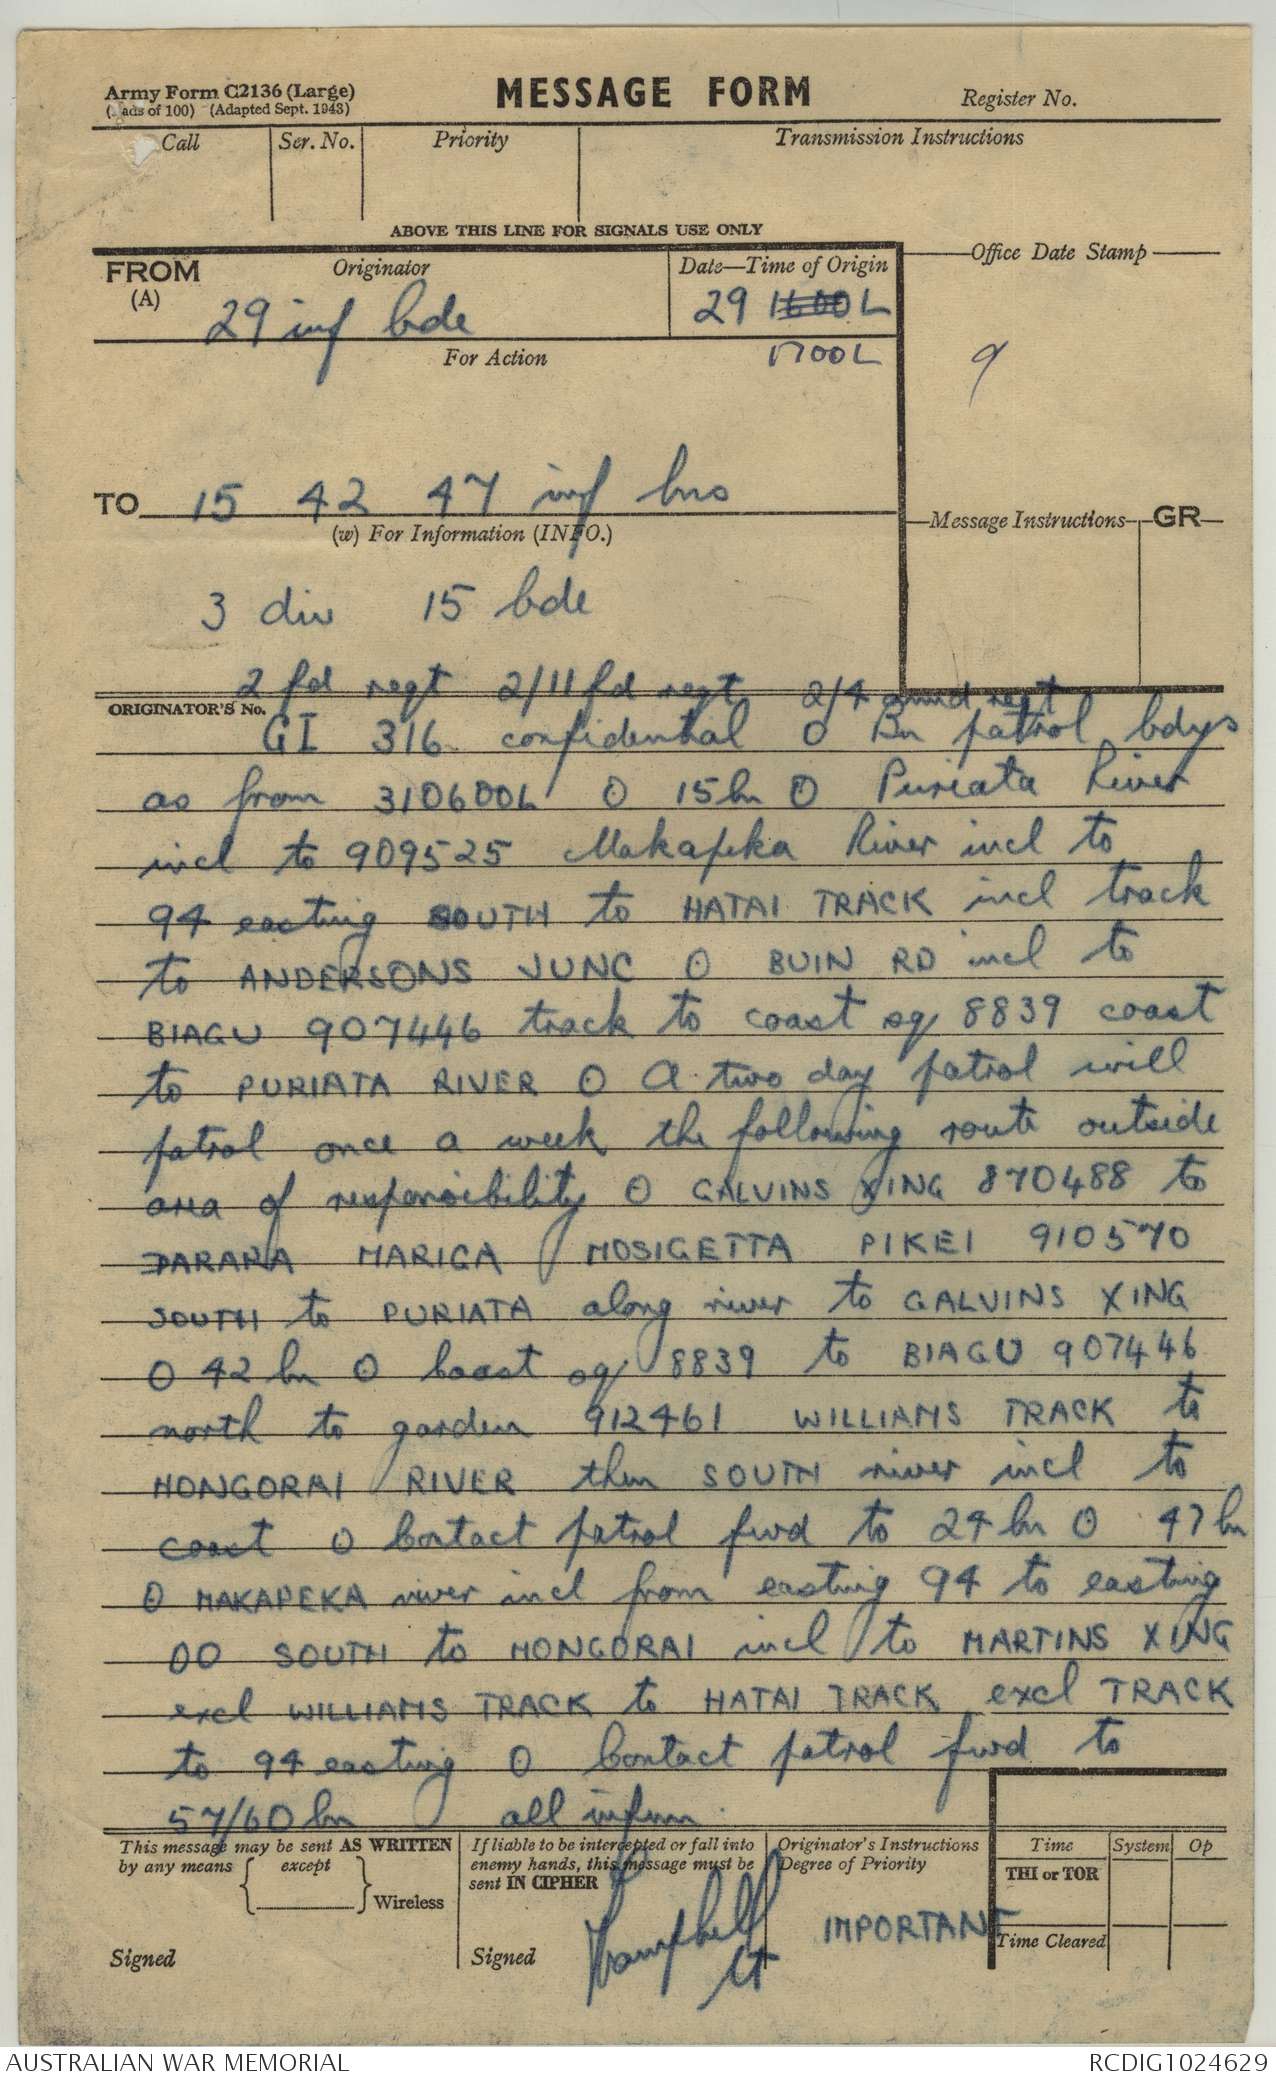 Army Form C2136 (Large)
(Pads of 100) (Adapted Sept. 1943)
MESSAGE FORM
Register No.
Call
Ser. No.
Priority
Transmission Instructions
ABOVE THIS LINE FOR SIGNALS USE ONLY
FROM
(A)
Originator
29 inf bde
Date—Time of Origin
29 1600 L
1700L
Office Date Stamp
9
For Action
TO 15 42 47 inf bns
(w) For Information (INFO.)
Message Instructions GR
3 div 15 bde
2 fd regt 2/11 fd regt 2/4 armd regt
ORIGINATOR'S No.
GI 316 confidential O Bn patrol bdys
as from 310600L O 15 bn O Puriata River
incl to 909525 Makapeka River incl to
94 easting SOUTH to HATAI TRACK incl track
to ANDERSONS JUNC O BUIN RD incl to
BIAGU 907446 track to coast sq 8839 coast
to PURIATA RIVER O A two day patrol will
patrol once a week the following route outside
area of responsibility O GALVINS XING 870488 to
DARARA MARIGA MOSIGETTA PIKEI 910570
SOUTH to PURIATA along river to GALVINS XING
O 42 bn O Coast sq 8839 to BIAGU 907446
north to garden 912461 WILLIAMS TRACK to
HONGORAI RIVER then SOUTH river incl to
coast O Contact patrol fwd to 24 bn O 47 bn
O MAKAPEKA river incl from easting 94 to easting
00 SOUTH to HONGORAI incl to MARTINS XING
excl WILLIAMS TRACK to HATAI TRACK excl TRACK
to 94 easting O Contact patrol fwd to
57/60 bn all infm
This message may be sent AS WRITTEN
by any means except
Wireless
Signed
If liable to be intercepted or fall into
enemy hands, this message must be
sent IN CIPHER
Signed
Campbell
Lt
Originator's Instructions
Degree of Priority
IMPORTANT
Time System Op
THI or TOR
Time Cleared
AUSTRALIAN WAR MEMORIAL
RCDIG1024629